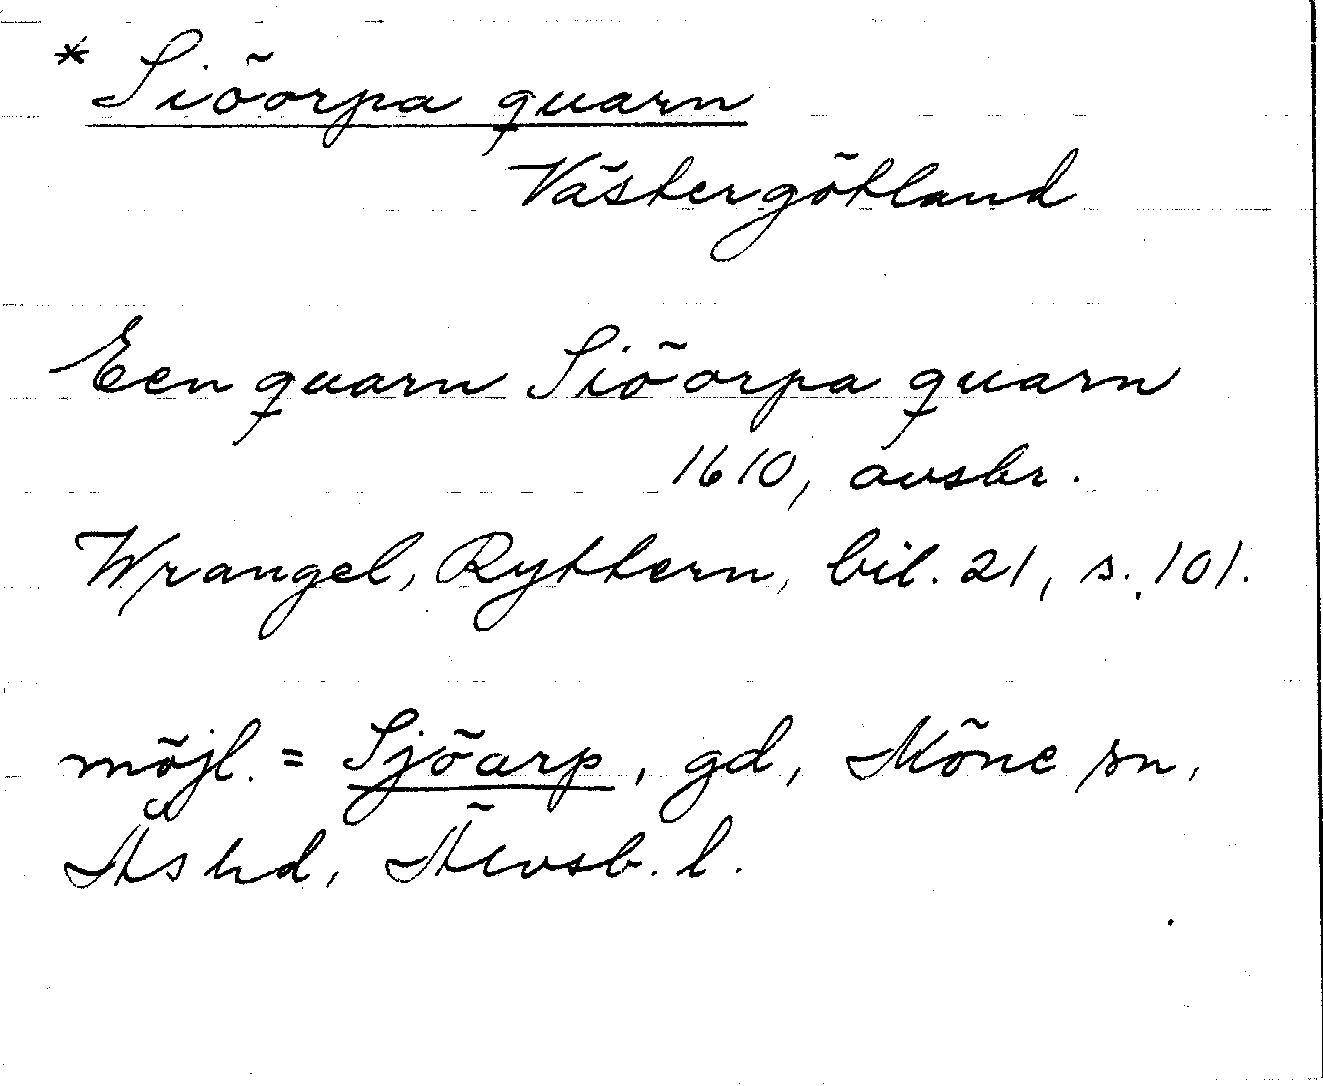 * Siöorpa quarn
Västergötland
Een quarn Siöorpa quarn
1610, avsbr.
Wrangel, Ryttern, bil. 21, s. 101.
möjl. = Sjöarp, gd, Möne sn,
Ås hd, Älvsb. l.